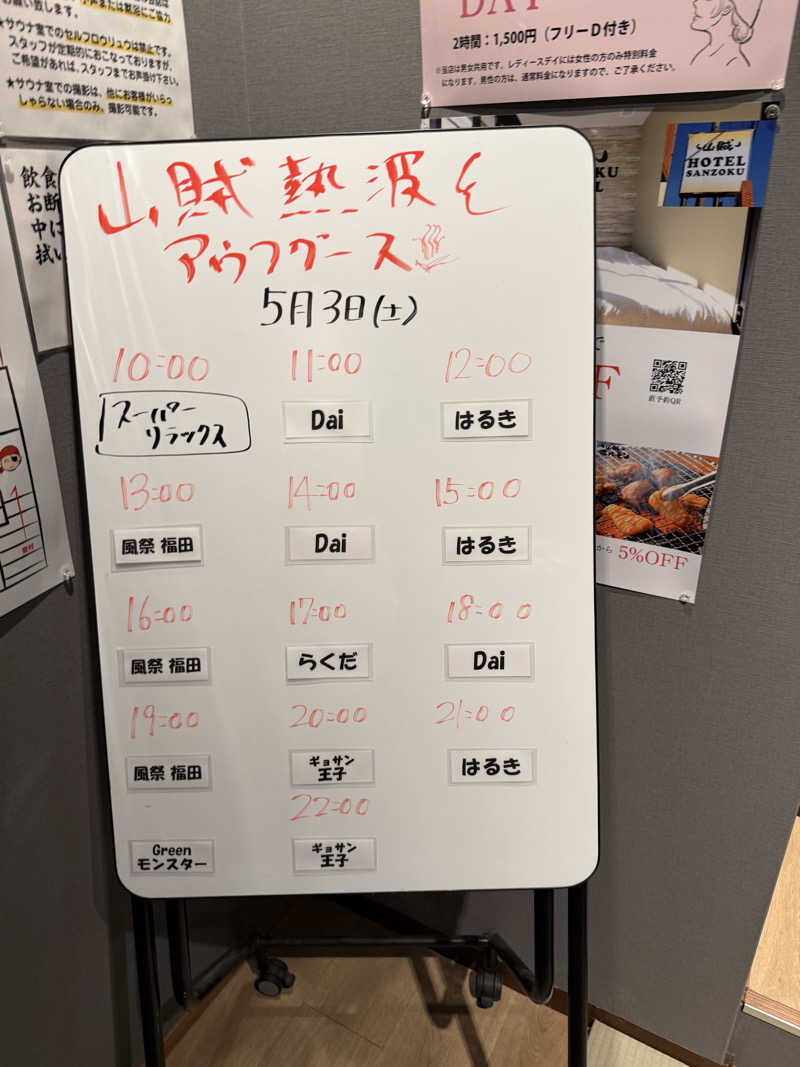 お願い致します。
★サウナ室でのセルフロウリュウは禁止です。
スタッフが定期的におこなっておりますが、
ご希望があれば、スタッフまでお声掛け下さい。
★サウナ室での撮影は、他にお客様がいらっ
しゃらない場合のみ、撮影可能です。
飲食
お断
中に
拭い
DAY
2時間：1,500円（フリーD付き）
※当店は男女共用です。レディースデイには女性の方のみ特別料金
になります。男性の方は、通常料金になりますので、ご了承ください。
山賊
HOTEL
SANZOKU
直予約QR
から 5%OFF
山賊熱波&
アウフグース
5月3日(土)
10:00 11:00 12:00
スーパー
リラックス
Dai はるき
13:00 14:00 15:00
風祭 福田 Dai はるき
16:00 17:00 18:00
風祭 福田 らくだ Dai
19:00 20:00 21:00
風祭 福田 ギョサン
王子
はるき
22:00
Green
モンスター
ギョサン
王子